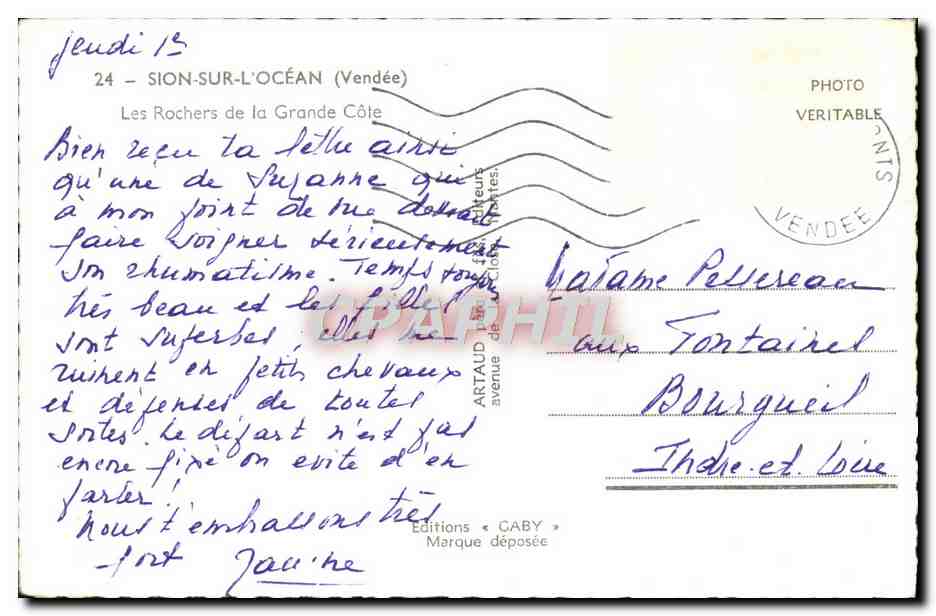 jeudi 1er
24 - SION-SUR-L'OCÉAN (Vendée)
Les Rochers de la Grande Côte
Bien reçu ta lettre ainsi
qu'une de Suzanne qui
à mon point de vue devrait
faire soigner sérieusement
son rhumatisme. Temps toujours
très beau et les filles
sont superbes, elles me
ruinent en petits chevaux
et dépenses de toutes
sortes. Le départ n'est pas
encore fixé on evite d'en
parler!
Nous t'embrassons très
fort Janine
ARTAUD père fils, Editeurs
avenue de la Close Nantes.
Editions « GABY »
Marque déposée
PHOTO
VERITABLE
ONTS
VENDÉE
Madame Pessereau
aux Fontaines
Bourgueil
Indre-et-Loire
CPAPHIL